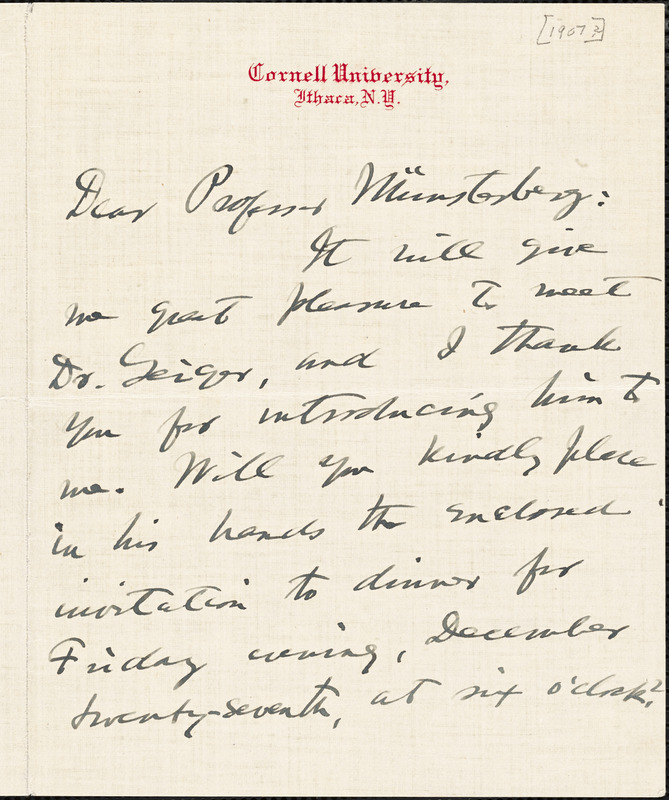 [1907?]
Cornell University,
Ithaca, N.Y.
Dear Professor Münsterberg:
It will give
me great pleasure to meet
Dr. Geiger, and I thank
you for introducing him to
me. Will you kindly place
in his hands the enclosed
invitation to dinner for
Friday evening, December
twenty-seventh, at six o'clock?